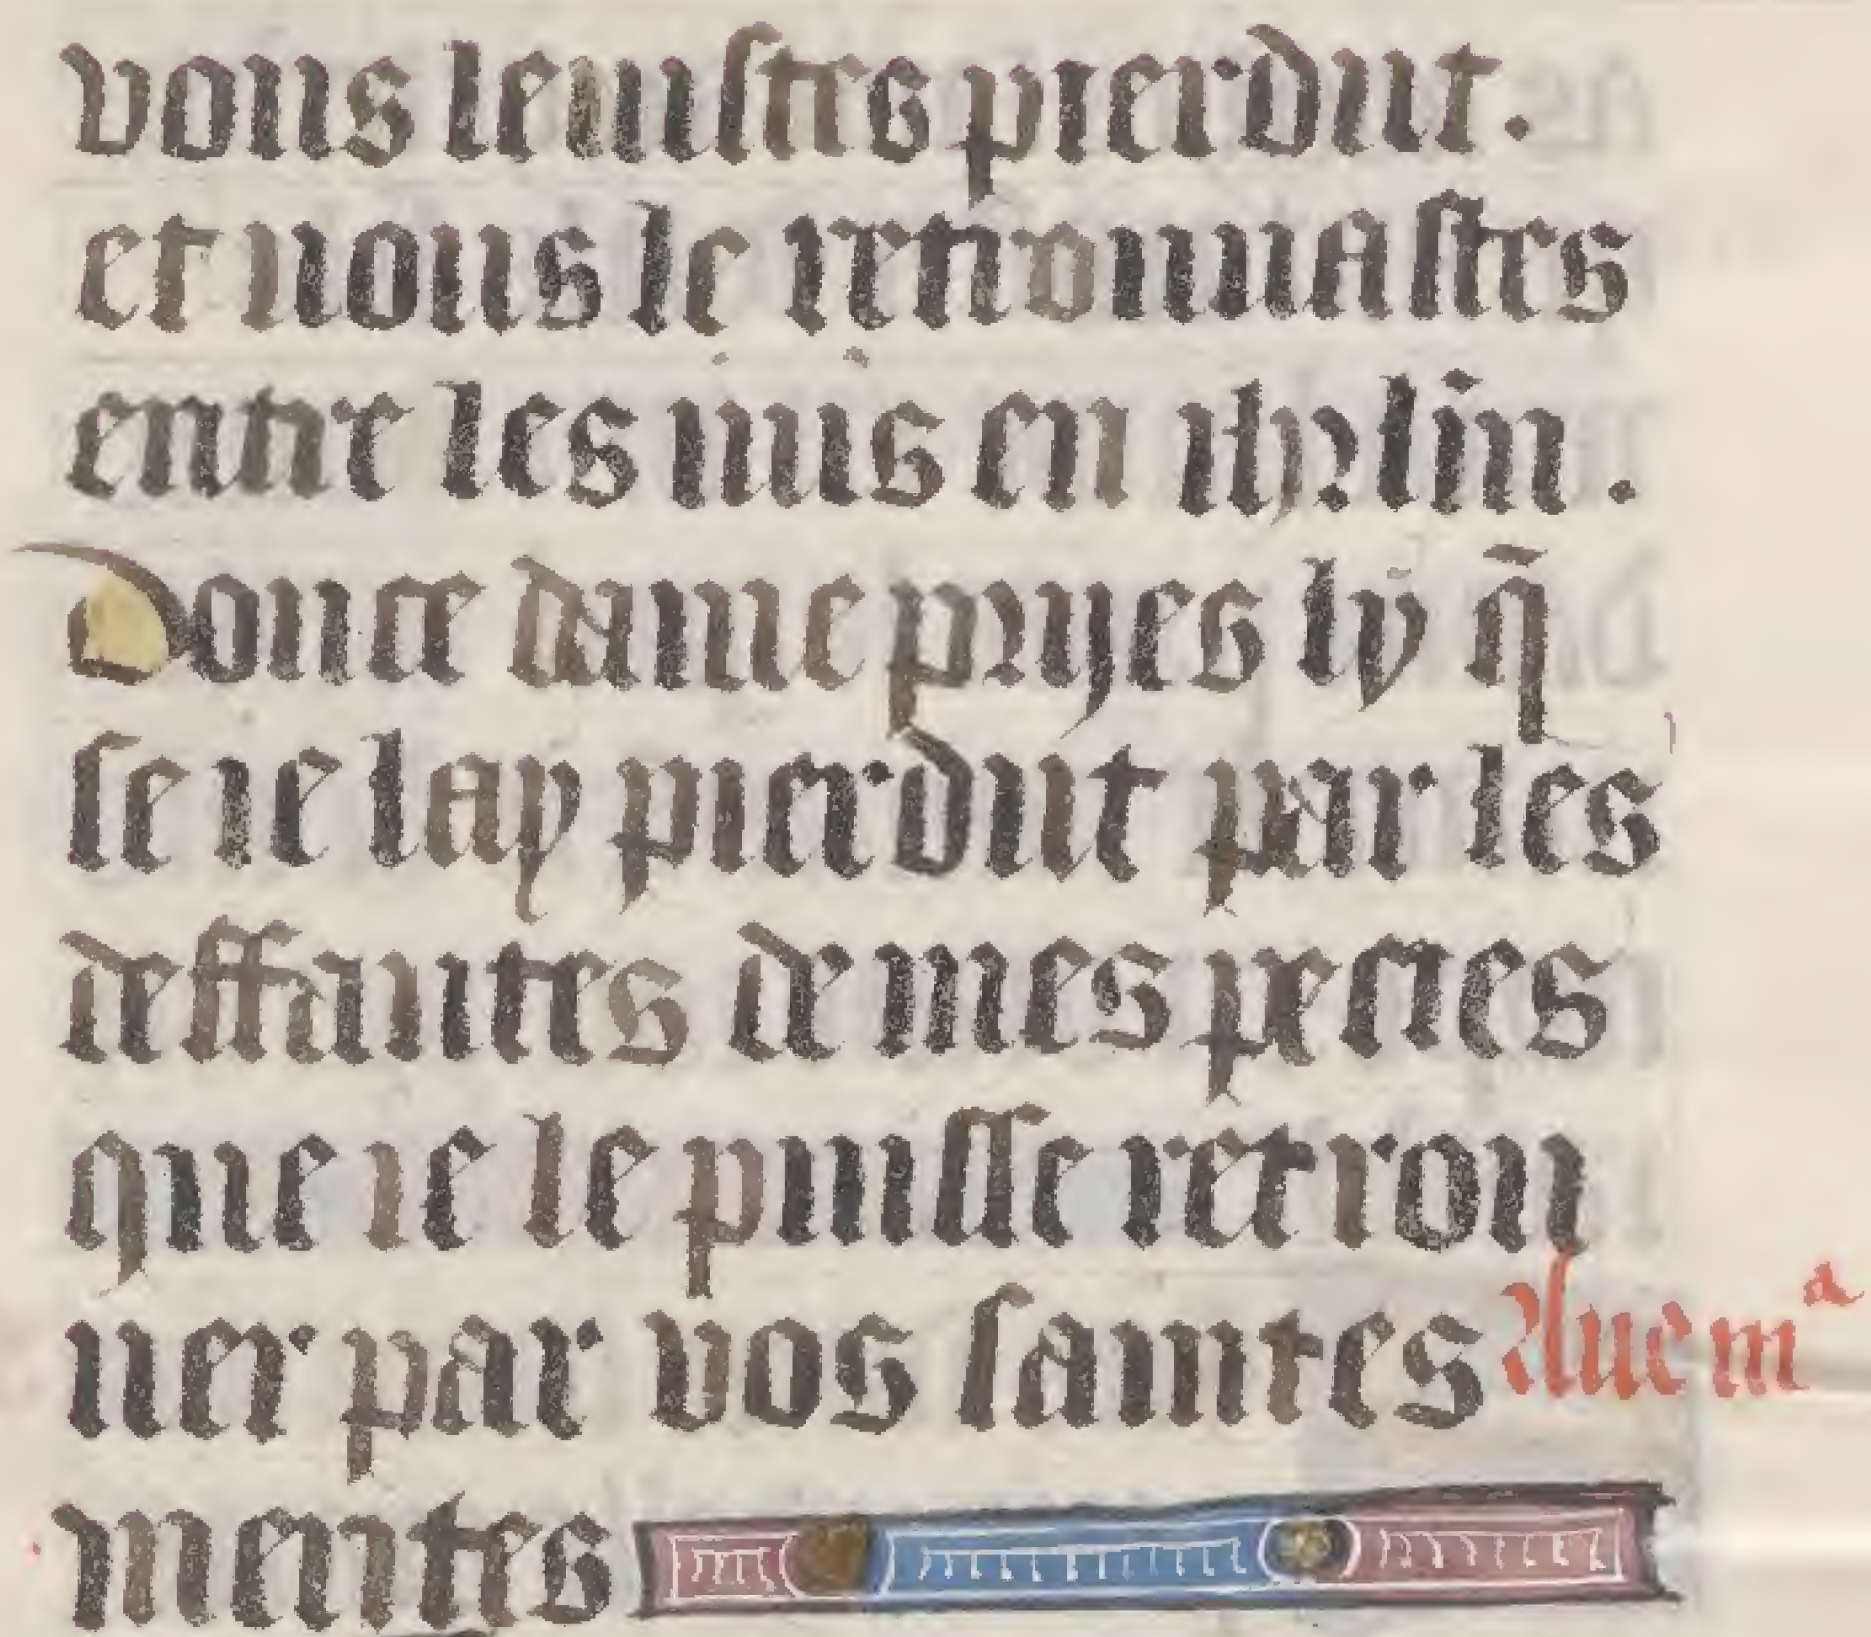 vous leuistes pierdut.
et uous le retrouuastes
entre les iuis en iherlm̄.
Douce dame pryes ly q̄
se ie lay pierdut par les
deffautes de mes pecies
que ie le puisse retrou
uer par vos saintes Aue mᵃ
merites